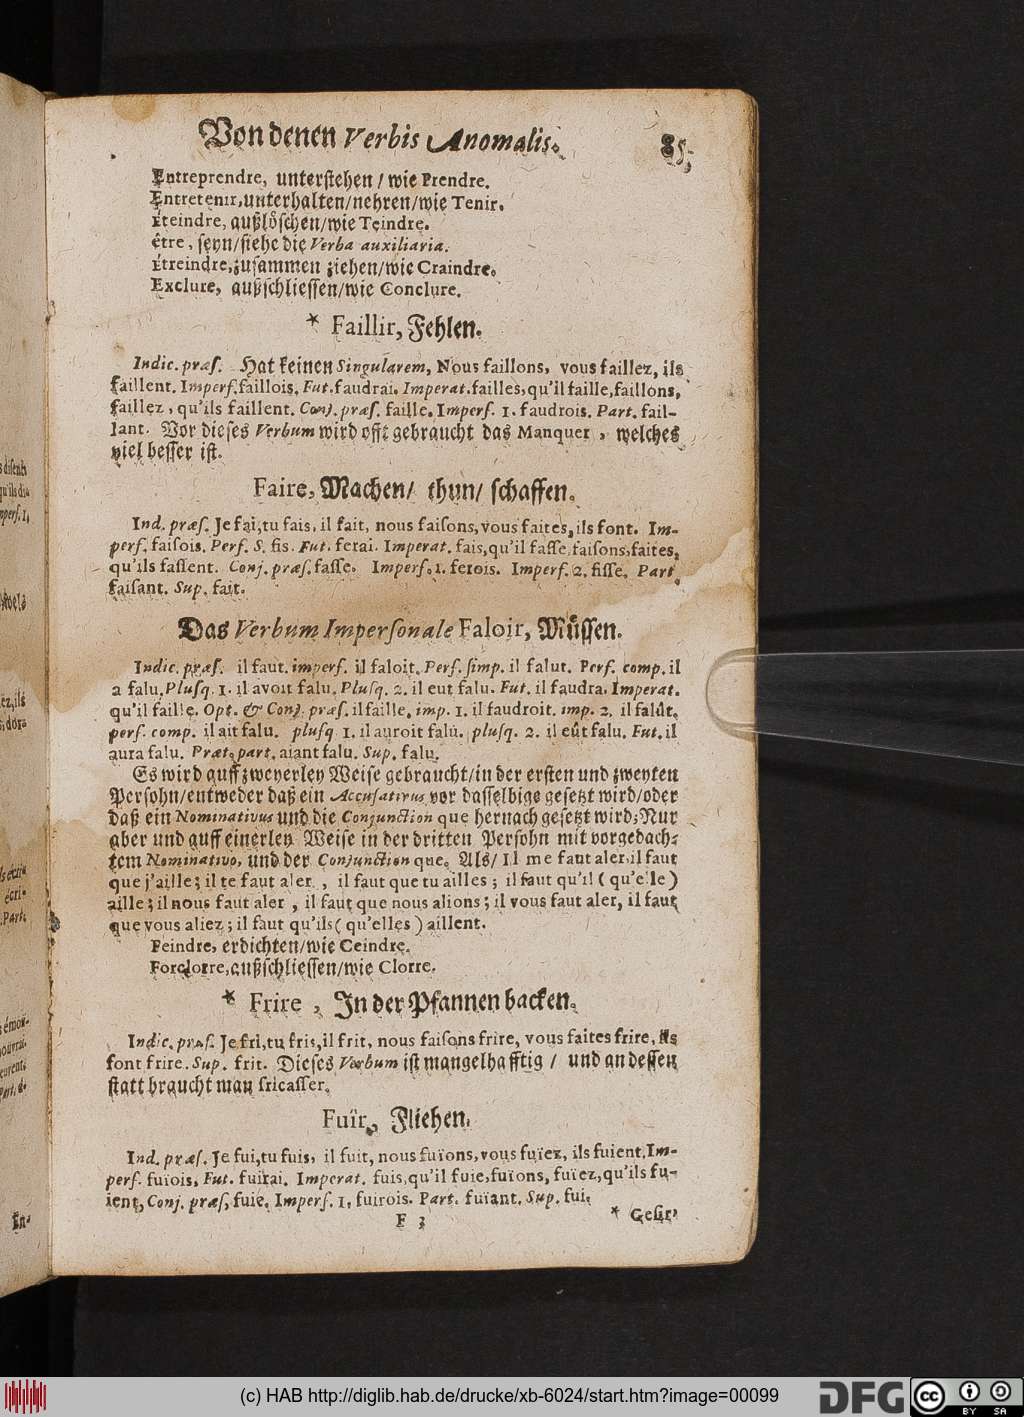 Von denen Verbis Anomalis. 85
Entreprendre, unterstehen / wie Prendre.
Entretenir, unterhalten/nehren/wie Tenir.
éteindre, außlöschen/wie Teindre.
être, seyn/siehe die Verba auxiliaria.
étreindre, zusammen ziehen/wie Craindre.
Exclure, außschliessen/wie Conclure.
* Faillir, Fehlen.
Indic. præs. Hat keinen Singularem, Nous faillons, vous faillez, ils
faillent. Imperf. faillois. Fut. faudrai. Imperat. failles, qu'il faille, faillons,
faillez, qu'ils faillent. Conj. præs. faille. Imperf. 1. faudrois. Part. fail-
lant. Vor dieses Verbum wird offt gebraucht das Manquer, welches
viel besser ist.
Faire, Machen/ thun/ schaffen.
Ind. præs. Je fai, tu fais, il fait, nous faisons, vous faites, ils font. Im-
perf. faisois. Perf. S. fis. Fut. ferai. Imperat. fais, qu'il fasse, faisons, faites,
qu'ils fassent. Conj. præs. fasse. Imperf. 1. ferois. Imperf. 2. fisse. Part.
faisant. Sup. fait.
Das Verbum Impersonale Faloir, Müssen.
Indic. præs. il faut. imperf. il faloit. Perf. simp. il falut. Perf. comp. il
a falu, Plusq. 1. il avoit falu. Plusq. 2. il eut falu. Fut. il faudra. Imperat.
qu'il faille. Opt. & Conj. præs. il faille. imp. 1. il faudroit. imp. 2. il falût.
perf. comp. il ait falu. plusq 1. il auroit falu. plusq. 2. il eût falu. Fut. il
aura falu. Præt. part. aiant falu. Sup. falu.
Es wird auff zweyerley Weise gebraucht/in der ersten und zweyten
Persohn/entweder daß ein Accusativus vor dasselbige gesetzt wird/oder
daß ein Nominativus und die Conjunction que hernach gesetzt wird; Nur
aber und auff einerley Weise in der dritten Persohn mit vorgedach-
tem Nominativo, und der Conjunction que. Als/ Il me faut aler, il faut
que j'aille; il te faut aler, il faut que tu ailles; il faut qu'il (qu'elle)
aille; il nous faut aler, il faut que nous alions; il vous faut aler, il faut
que vous aliez; il faut qu'ils (qu'elles) aillent.
Feindre, erdichten/wie Ceindre.
Forclorre, außschliessen/wie Clorre.
* Frire, In der Pfannen backen.
Indic. præs. Je fri, tu fris, il frit, nous faisons frire, vous faites frire, ils
font frire. Sup. frit. Dieses Verbum ist mangelhafftig / und an dessen
statt braucht man fricasser.
Fuïr, Fliehen.
Ind. præs. Je fui, tu fuis, il fuit, nous fuïons, vous fuïez, ils fuient. Im-
perf. fuïois. Fut. fuirai. Imperat. fuis, qu'il fuie, fuïons, fuïez, qu'ils fu-
ient, Conj. præs, fuie. Imperf. 1. fuirois. Part. fuïant. Sup. fui.
F 3
* Gesir,
(c) HAB http://diglib.hab.de/drucke/xb-6024/start.htm?image=00099
DFG
cc BY SA